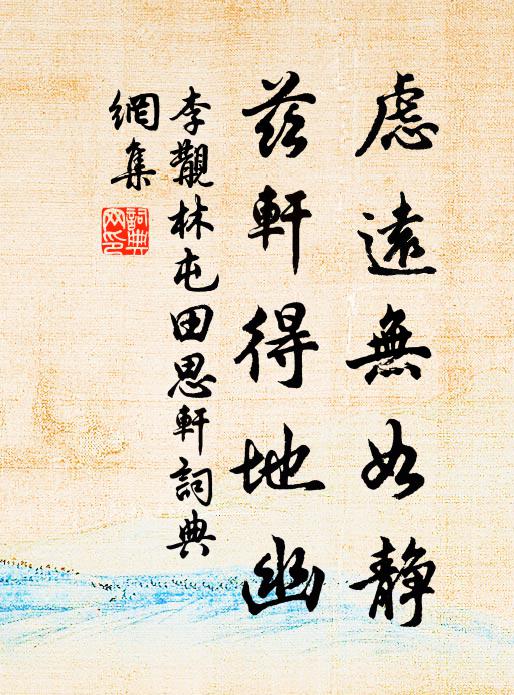 慮遠無如静
茲軒得地幽
李覯林屯田思軒詞典
網集
詞典
网印